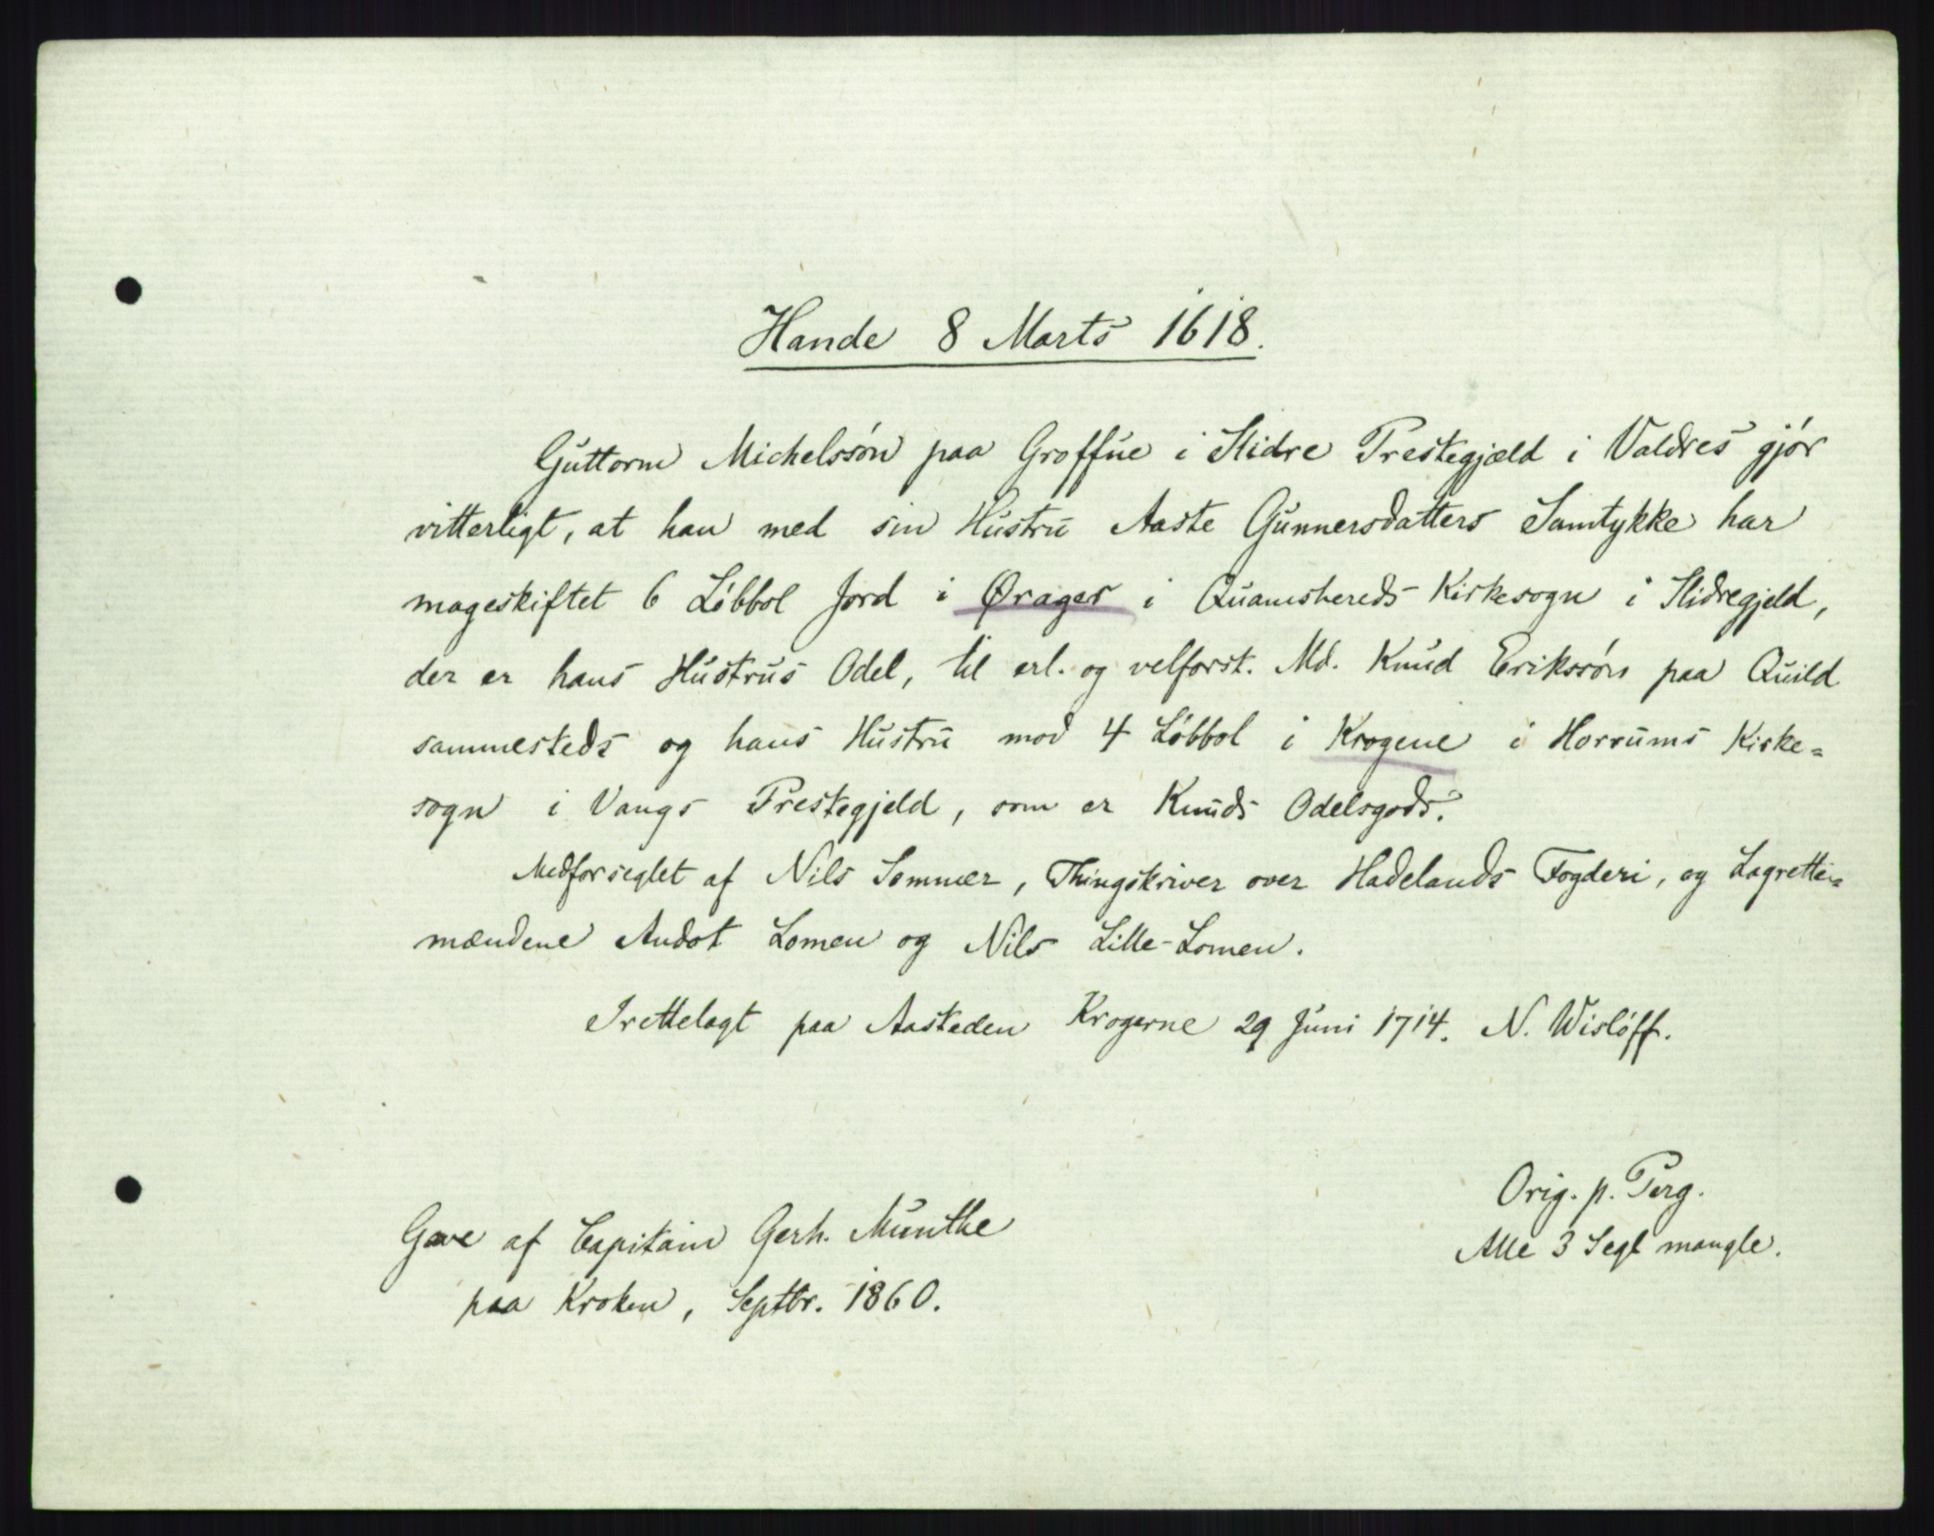 Hande 8 Marts 1618.
Guttorm Michelssøn paa Groffue i Slidre Prestegjæld i Valdres gjør
vitterligt, at han med sin Hustru Aaste Gunnersdatters Samtykke har
mageskiftet 6 Løbbol Jord i Ørager i Quamshereds Kirkesogn i Slidregjeld,
der er hans Hustrus Odel, til erl. og velforst. Md. Knud Erikssøn paa Quild
sammesteds og hans Hustru mod 4 Løbbol i Krogene i Horrums Kirke=
sogn i Vangs Prestegjeld, som er Knuds Odelsgods.
Medforseglet af Nils Sommer, Thingskriver over Hadelands Fogderi, og Lagrettes=
mændene Andot Lomen og Nils Lille-Lomen.
Irettelagt paa Aastæden Krogerne 29 Juni 1714. N. Wisløff.
Orig. p. Perg.
Alle 3 Segl mangle.
Gave af Capitain Gerh. Munthe
paa Kroken, Septbr. 1860.